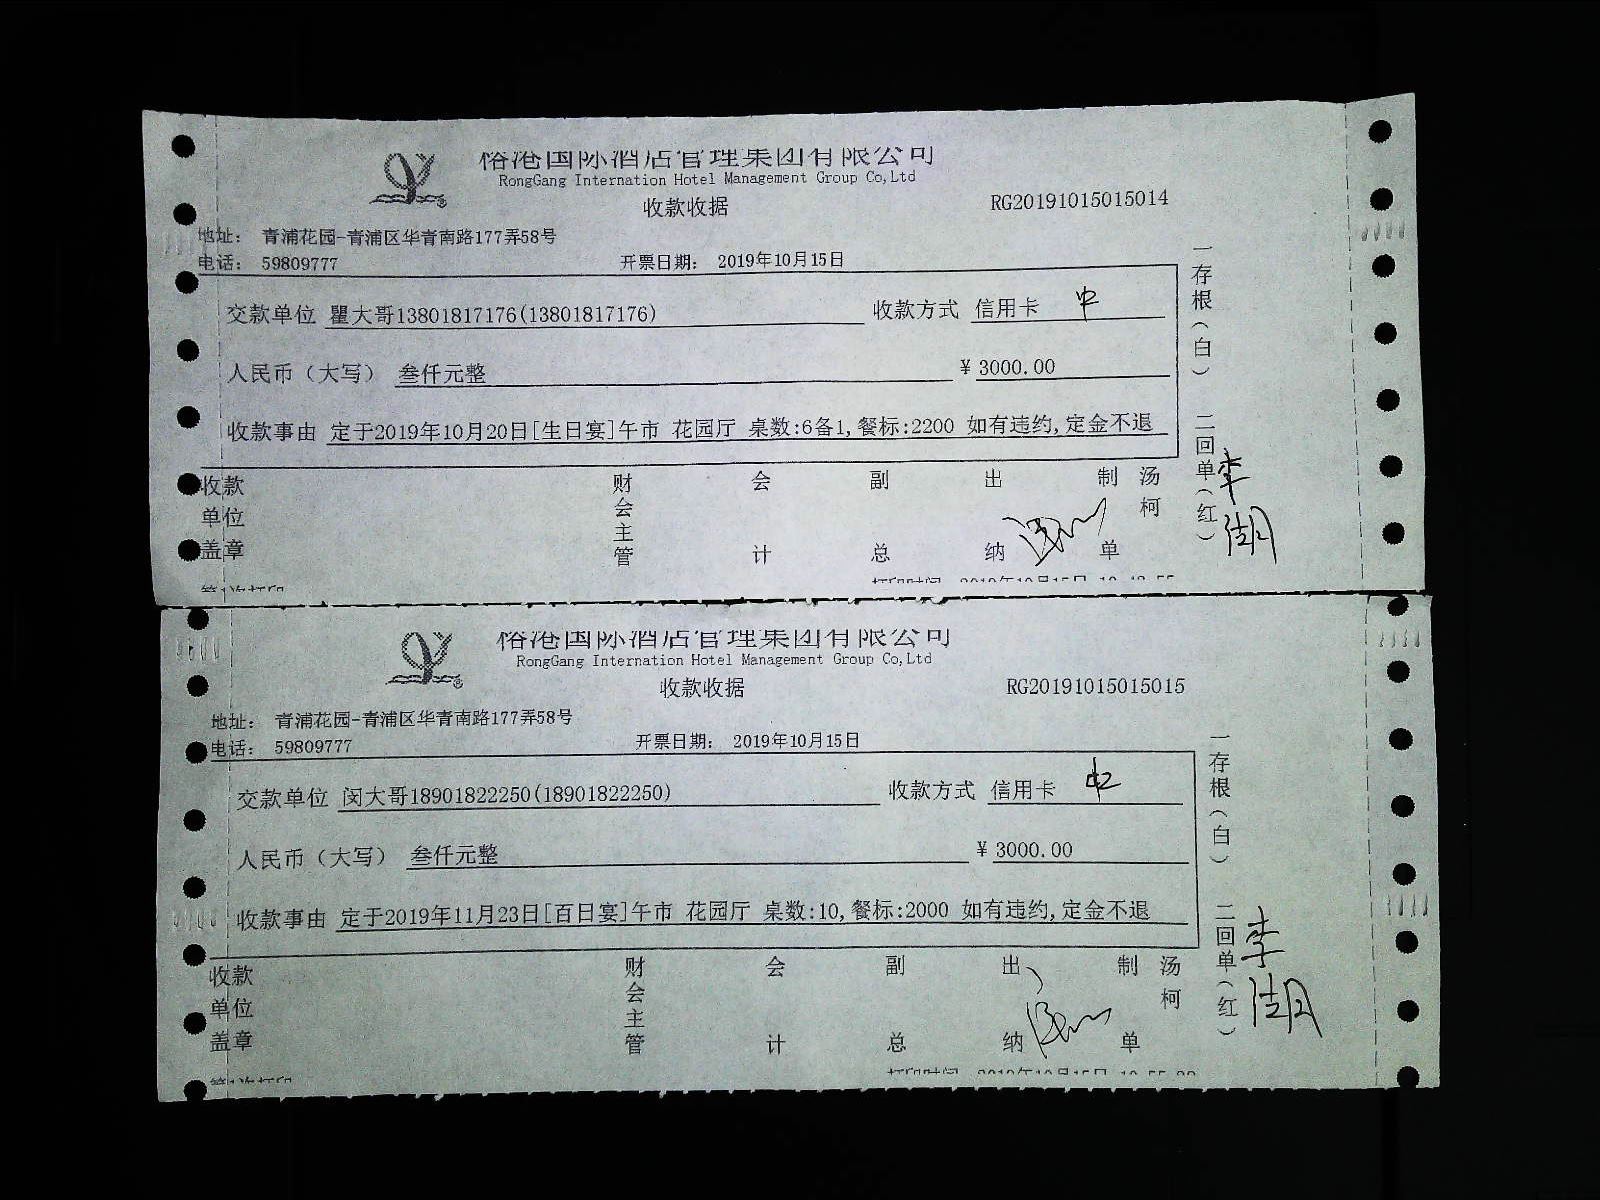 榕港国际酒店管理集团有限公司
RongGang Internation Hotel Management Group Co,Ltd
收款收据
RG20191015015014
地址： 青浦花园-青浦区华青南路177弄58号
电话： 59809777
开票日期： 2019年10月15日
交款单位 瞿大哥13801817176(13801817176) 收款方式 信用卡 中
人民币（大写） 叁仟元整 ￥3000.00
收款事由 定于2019年10月20日[生日宴]午市 花园厅 桌数:6备1,餐标:2200 如有违约,定金不退
收款单位盖章 财会主管 会计 副总 出纳 制单 汤柯
一存根（白） 二回单（红）
李湖
第1次打印
打印时间 2019年10月15日
榕港国际酒店管理集团有限公司
RongGang Internation Hotel Management Group Co,Ltd
收款收据
RG20191015015015
地址： 青浦花园-青浦区华青南路177弄58号
电话： 59809777
开票日期： 2019年10月15日
交款单位 闵大哥18901822250(18901822250) 收款方式 信用卡
人民币（大写） 叁仟元整 ￥3000.00
收款事由 定于2019年11月23日[百日宴]午市 花园厅 桌数:10,餐标:2000 如有违约,定金不退
收款单位盖章 财会主管 会计 副总 出纳 制单 汤柯
一存根（白） 二回单（红）
李湖
第1次打印
打印时间 2019年10月15日